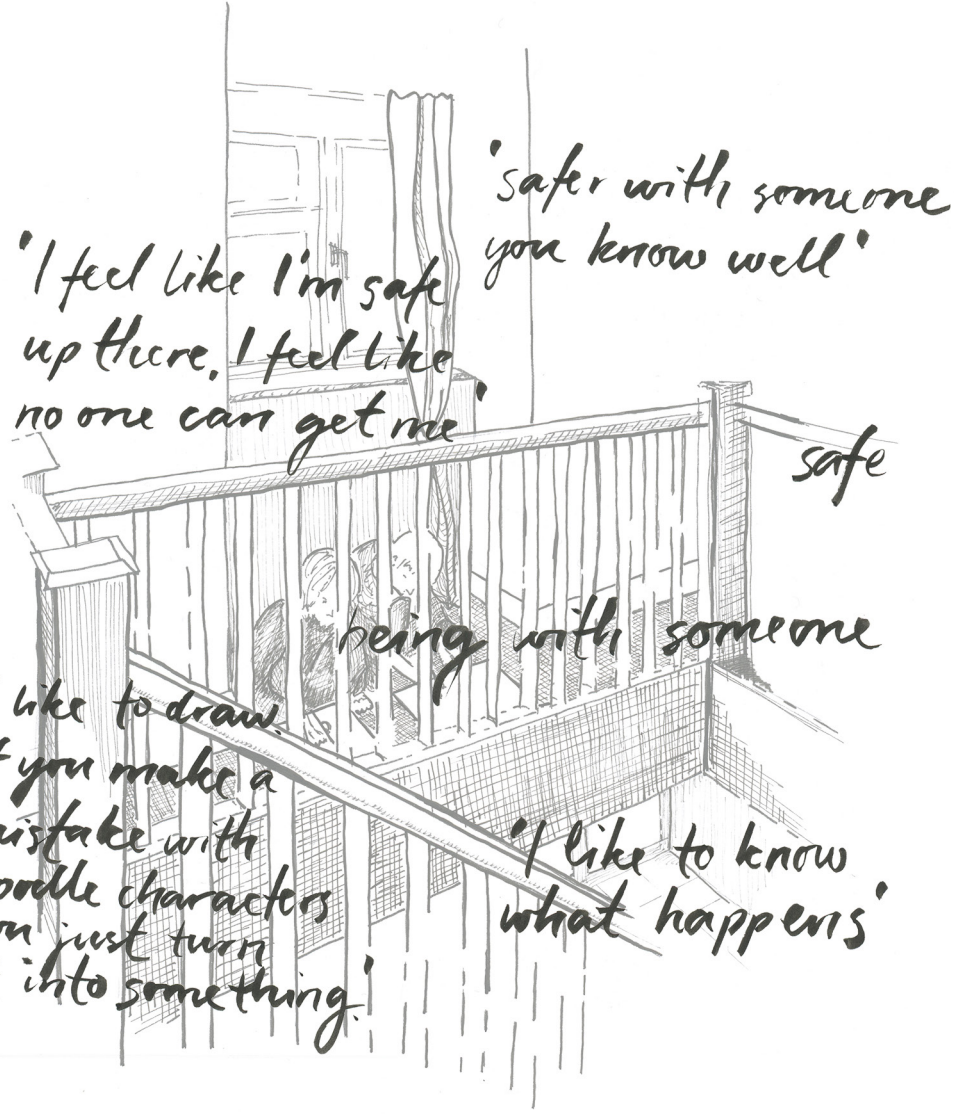 'safer with someone
you know well'
'I feel like I'm safe
up there. I feel like
no one can get me'
safe
being with someone
like to draw.
you make a
with
characters
just turn
into something.'
'I like to know
what happens'